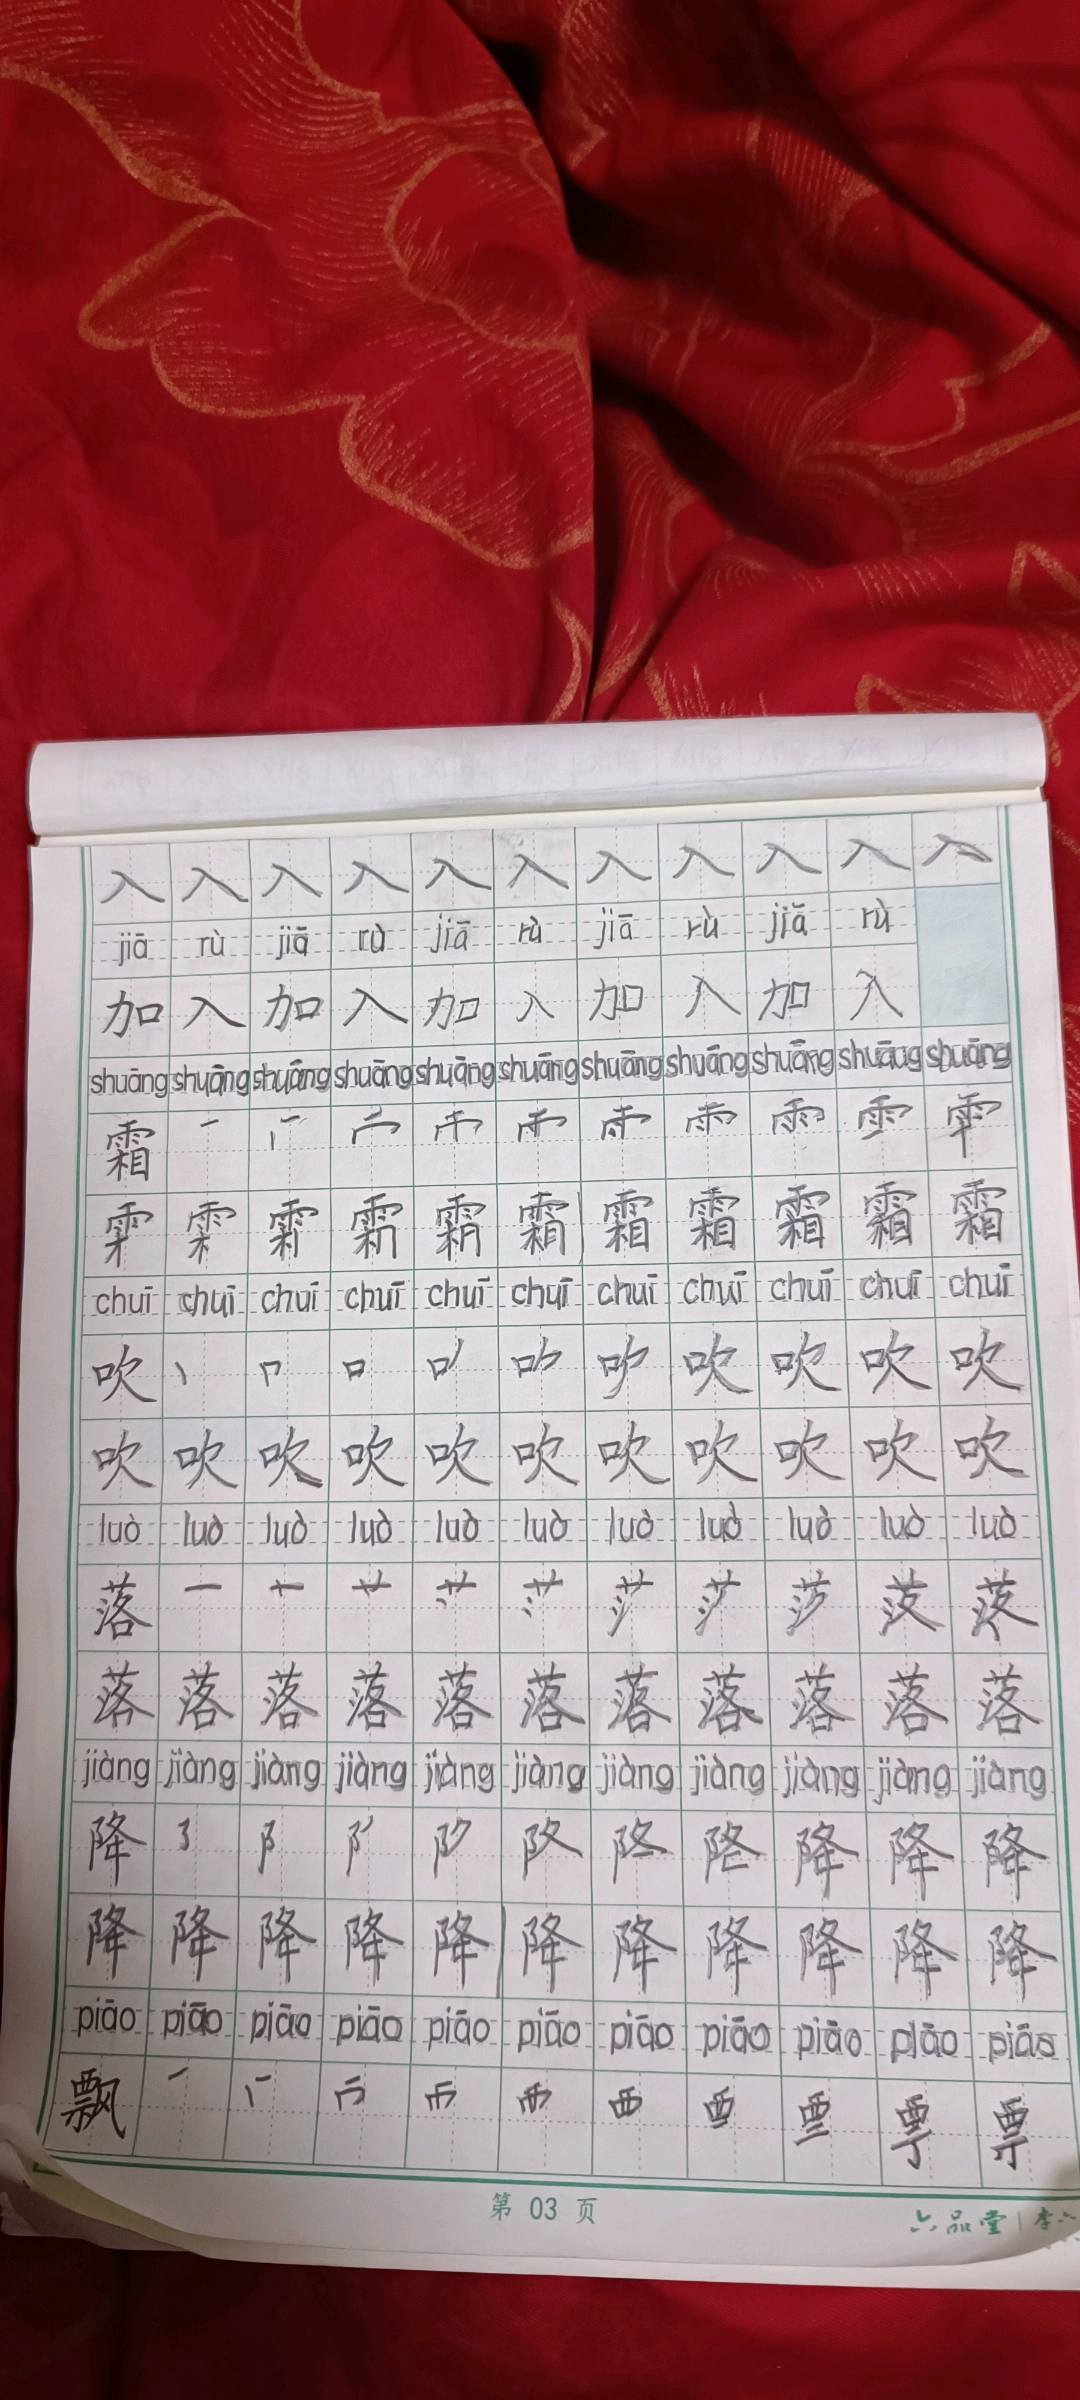 入 入 入 入 入 入 入 入 入 入 入
jiā rù jiā rù jiā rù jiā rù jiā rù
加 入 加 入 加 入 加 入 加 入
shuāng shuāng shuāng shuāng shuāng shuāng shuāng shuāng shuāng shuāug shuāng
霜 一
霜 霜 霜 霜 霜
chuī chuī chuī chuī chuī chuī chuī chuī chuī chuī chuī
吹 丶 口 吹 吹 吹 吹
吹 吹 吹 吹 吹 吹 吹 吹 吹 吹 吹
luò luò luò luò luò luò luò luò luò luò luò
落 一 十 艹
落 落 落 落 落 落 落 落 落 落
jiàng jiàng jiàng jiàng jiàng jiàng jiàng jiàng jiàng jiàng jiàng
降 阝 降 降 降
降 降 降 降 降 降 降 降 降 降 降
piāo piāo piāo piāo piāo piāo piāo piāo piāo piāo piāo
飘 一 覀 票
第 03 页
六品堂 | 李六